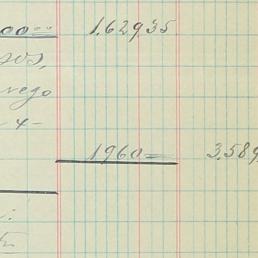 00 1.629,35
sos,
rego
-4-
1960= 3.589